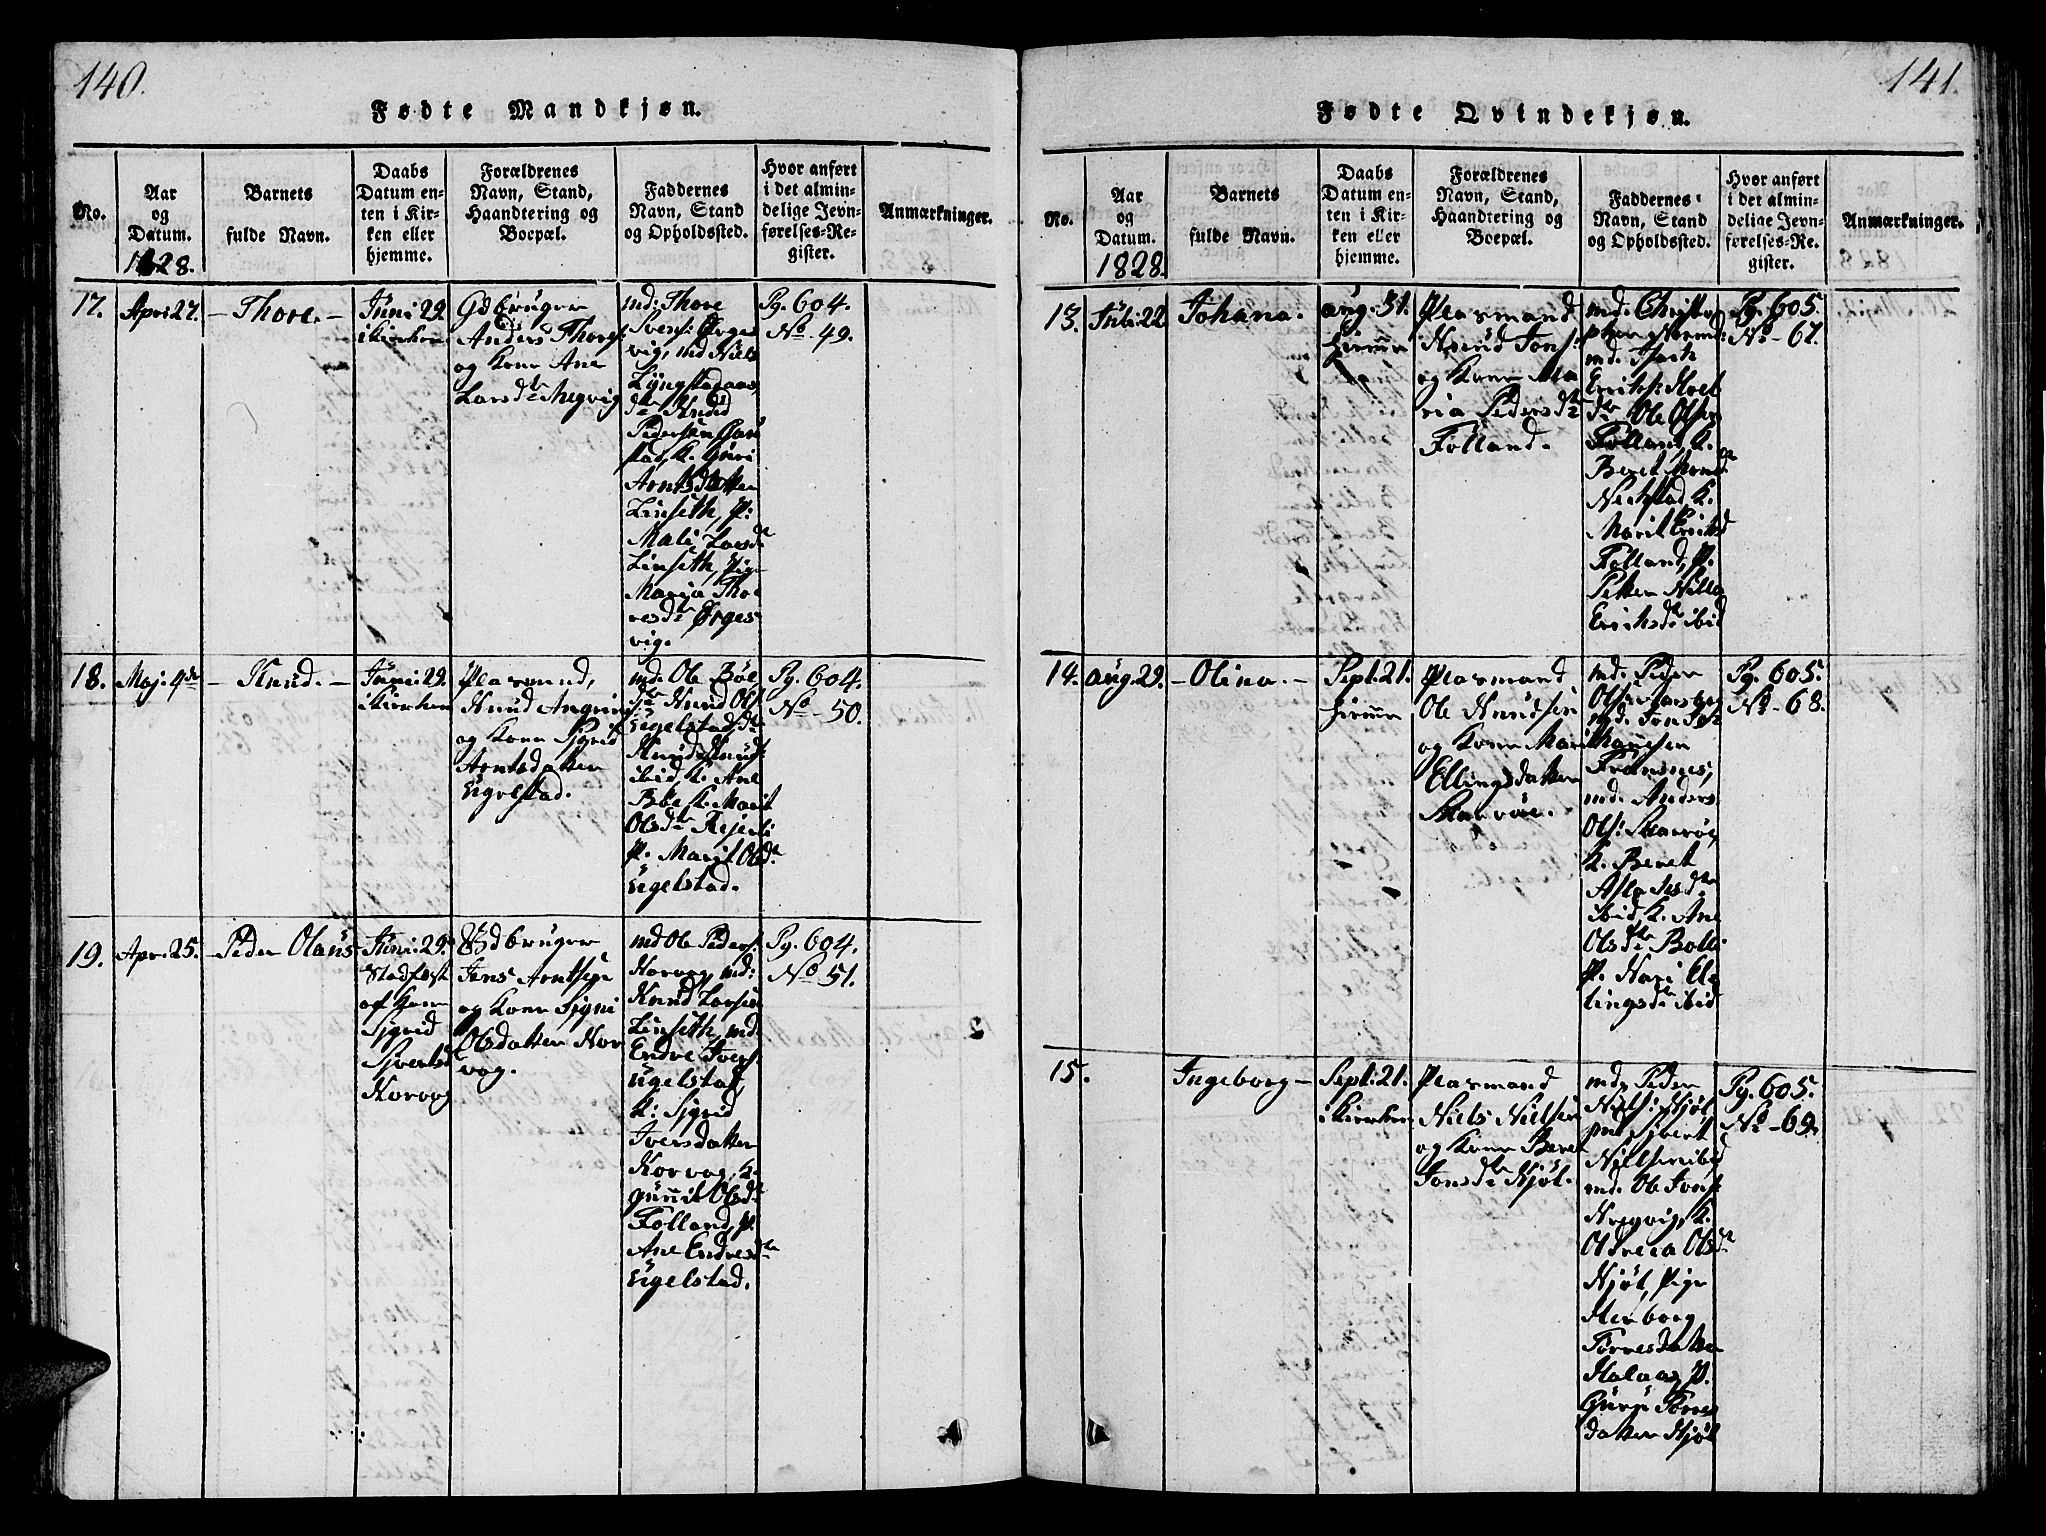 140.
Fødte Mandkjøn.
No.
Aar
og
Datum.
1828.
Barnets
fulde Navn.
Daabs
Datum en-
ten i Kir-
ken eller
hjemme.
Forældrenes
Navn, Stand,
Haandtering og
Boepæl.
Faddernes
Navn, Stand
og Opholdssted.
Hvor anført
i det almin-
delige Jevn-
førelses-Re-
gister.
Anmærkninger.
17.
Apri 27.
- Thore. -
Juni 29
i kirken
Gdbruger
Anders Thores:
og Kone Ane
Larsdtr Megvig
md: Thore
Svens: Ørges
vig, md Niels
Lyngstadaas
Knud
Pedersen
k. Guri
Arntsdatter
Linseth, P:
Mali Larsdtr
Linseth, Pige
Marja Tho
resdtr Ørges
vig.
Pg. 604.
No - 49.
18.
Maj. 4de
- Knud. -
Juni: 29.
i kirken
Plasmand,
Knud
og Kone Sjgrid
Arntsdatter
Ugelstad.
md. Ole Bøe
Knud Ols:
Ugelstad,
Knud Knud:
ibid, k. Ane
Bøe k. Marit
Olsdtr
P. Marit Olsdtr
Ugelstad.
Pg. 604.
No - 50.
19.
Apr. 25.
- Peder Olaus
Juni: 29.
Stadfæst
af Kone
Sjgrid
Sjvertsd
Korvog
Gdbruger
Jens Arntsen
og Kone Sjgni
Olsdatter Kor
vog.
md Ole Peders:
Korvog, md:
Knud Larsen
Linseth, md.
Endre Ivers:
Ugelstad,
k: Sjgrid
Iversdatter
Korvog, k.
Gunnil Olsdtr
Folland, P.
Ane Endresdtr
Ugelstad.
Pg. 604.
No - 51.
141.
Fødte Qvindekjøn.
No.
Aar
og
Datum.
1828.
Barnets
fulde Navn.
Daabs
Datum en-
ten i Kir-
ken eller
hjemme.
Forældrenes
Navn, Stand,
Haandtering og
Boepæl.
Faddernes
Navn, Stand
og Opholdssted.
Hvor anført
i det almin-
delige Jevn-
førelses-Re-
gister.
Anmærkninger.
13.
Juli: 22
Johana.
Aug. 31.
Plasmand
Knud Jons:
og Kone Ma
ria Pedersdtr
Folland.
md. Christo
md.
Eriks:
Ole Olsen
Folland, k.
Beret
k.
Marit Eriksd
Folland, P.
Eriksdtr ibid
Pg. 605.
No - 67.
14.
Aug. 29.
- Olina. -
Sept. 21.
Plasmand
Ole Knudsen
og Kone Marit
Ellingsdatter
Skarvøe.
md. Peder
Olsen
md. Jon Jo
hannesen
md. Anders
Ols: Skarvøe,
k. Beret
Aslaksdtr
ibid, k. Ane
Olsdtr Bolli
P. Kari El
lingsdtr ibid
Pg. 605.
No - 68.
15.
Ingeborg -
Sept: 21.
i kirken
Plasmand
Niels Nielsen
og Kone Beret
Jonsdtr Kjøl.
md, Peder
Niels: Kjøl
md, Sjvert
Nielsen ibid
md. Ole Jons:
Megvig, k.
Oldreia Olsdtr
Kjøl, Pige
Herborg
Torresdatter
Halaas, P.
Gurje Torres
datter Kjøl
Pg. 605.
No - 69.